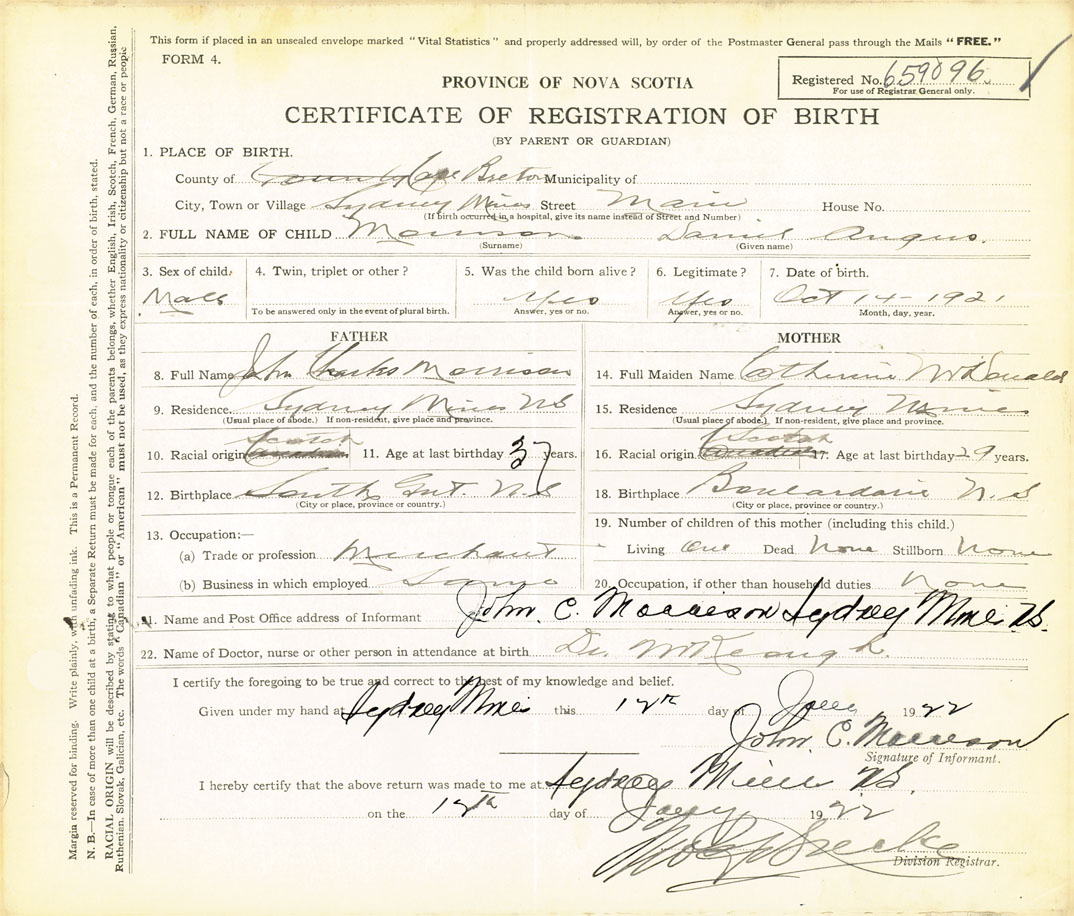 This form if placed in an unsealed envelope marked "Vital Statistics" and properly addressed will, by order of the Postmaster General pass through the Mails "FREE."
FORM 4.
Registered No. 659096
For use of Registrar General only.
PROVINCE OF NOVA SCOTIA
CERTIFICATE OF REGISTRATION OF BIRTH
(BY PARENT OR GUARDIAN)
1. PLACE OF BIRTH.
County of Cape Breton Municipality of
City, Town or Village Sydney Mines Street Main House No.
(If birth occurred in a hospital, give its name instead of Street and Number)
2. FULL NAME OF CHILD Morrison Daniel Angus.
(Surname) (Given name)
3. Sex of child. 4. Twin, triplet or other? 5. Was the child born alive? 6. Legitimate? 7. Date of birth.
Male Yes Yes Oct 14 - 1921
To be answered only in the event of plural birth. Answer, yes or no. Answer, yes or no. Month, day, year.
FATHER
8. Full Name John Charles Morrison
9. Residence Sydney Mines NS
(Usual place of abode.) If non-resident, give place and province.
10. Racial origin Scotch 11. Age at last birthday 37 years.
12. Birthplace South Gut. N S
(City or place, province or country.)
13. Occupation:—
(a) Trade or profession Merchant
(b) Business in which employed Same
MOTHER
14. Full Maiden Name Catherine McDonald
15. Residence Sydney Mines
(Usual place of abode.) If non-resident, give place and province.
16. Racial origin Scotch 17. Age at last birthday 29 years.
18. Birthplace Boulardarie N. S
(City or place, province or country.)
19. Number of children of this mother (including this child.)
Living One Dead None Stillborn None
20. Occupation, if other than household duties None
21. Name and Post Office address of Informant John C. Morrison Sydney Mines NS.
22. Name of Doctor, nurse or other person in attendance at birth Dr. McKeough.
I certify the foregoing to be true and correct to the best of my knowledge and belief.
Given under my hand at Sydney Mines this 12th day of Jany 1922
John. C. Morrison
Signature of Informant.
I hereby certify that the above return was made to me at Sydney Mines NS.
on the 12th day of Jany 1922
Division Registrar.
Margin reserved for binding. Write plainly, with unfading ink. This is a Permanent Record.
N. B.—In case of more than one child at a birth, a Separate Return must be made for each, and the number of each, in order of birth, stated.
RACIAL ORIGIN will be described by stating to what people or tongue each of the parents belongs, whether English, Irish, Scotch, French, German, Russian,
Ruthenian, Slovak, Galician, etc. The words "Canadian" or "American" must not be used, as they express nationality or citizenship but not a race or people